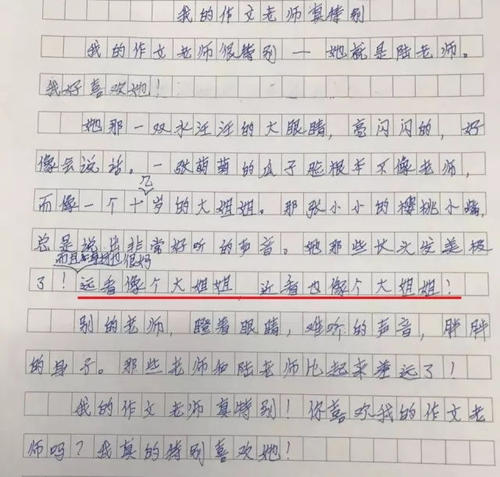 我的作文老师真特别
我的作文老师很特别 — 她就是陆老师。
我好喜欢她！
她那一双水汪汪的大眼睛，亮闪闪的，好
像会说话。一张萌萌的瓜子脸根本不像老师，
而像一个十几岁的大姐姐。那张小小的樱桃小嘴，
总是说出非常好听的声音。她那些长头发美极
而且身材也很好
了！远看像个大姐姐，近看也像个大姐姐！
别的老师，瞪着眼睛，难听的声音，胖胖
的身子。那些老师和陆老师比起来差远了！
我的作文老师真特别！你喜欢我的作文老
师吗？我真的特别喜欢她！